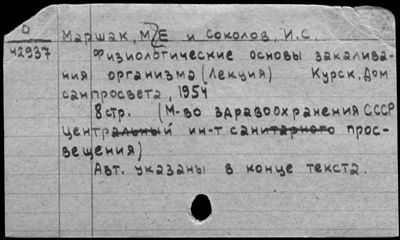 О Маршак, М.Е. и Соколов, И.С.
42937 Физиологические основы закалива-
ния организма (Лекция) Курск, Дом
санпросвета, 1954
8 стр. (М-во здравоохранения СССР
Центральный ин-т санитарного прос-
вещения)
Авт. указаны в конце текста.